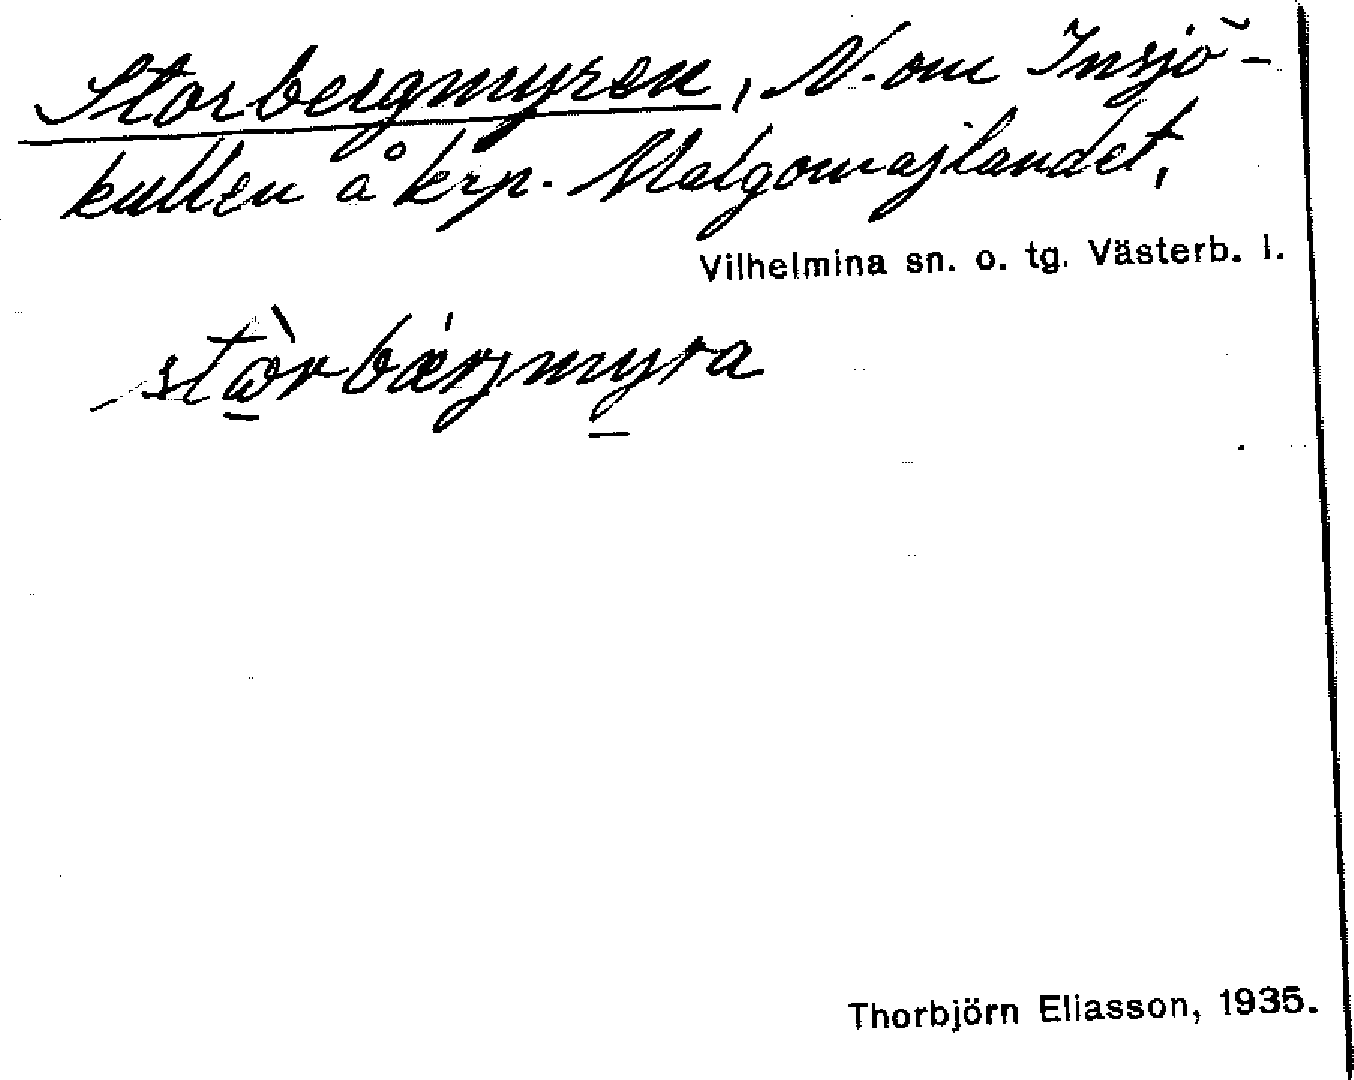 Storbergmyren, N. om Insjö-
kullen å krp. Malgomajlandet,
Vilhelmina sn. o. tg. Västerb. l.
stòrbærjmyra
Thorbjörn Eliasson, 1935.